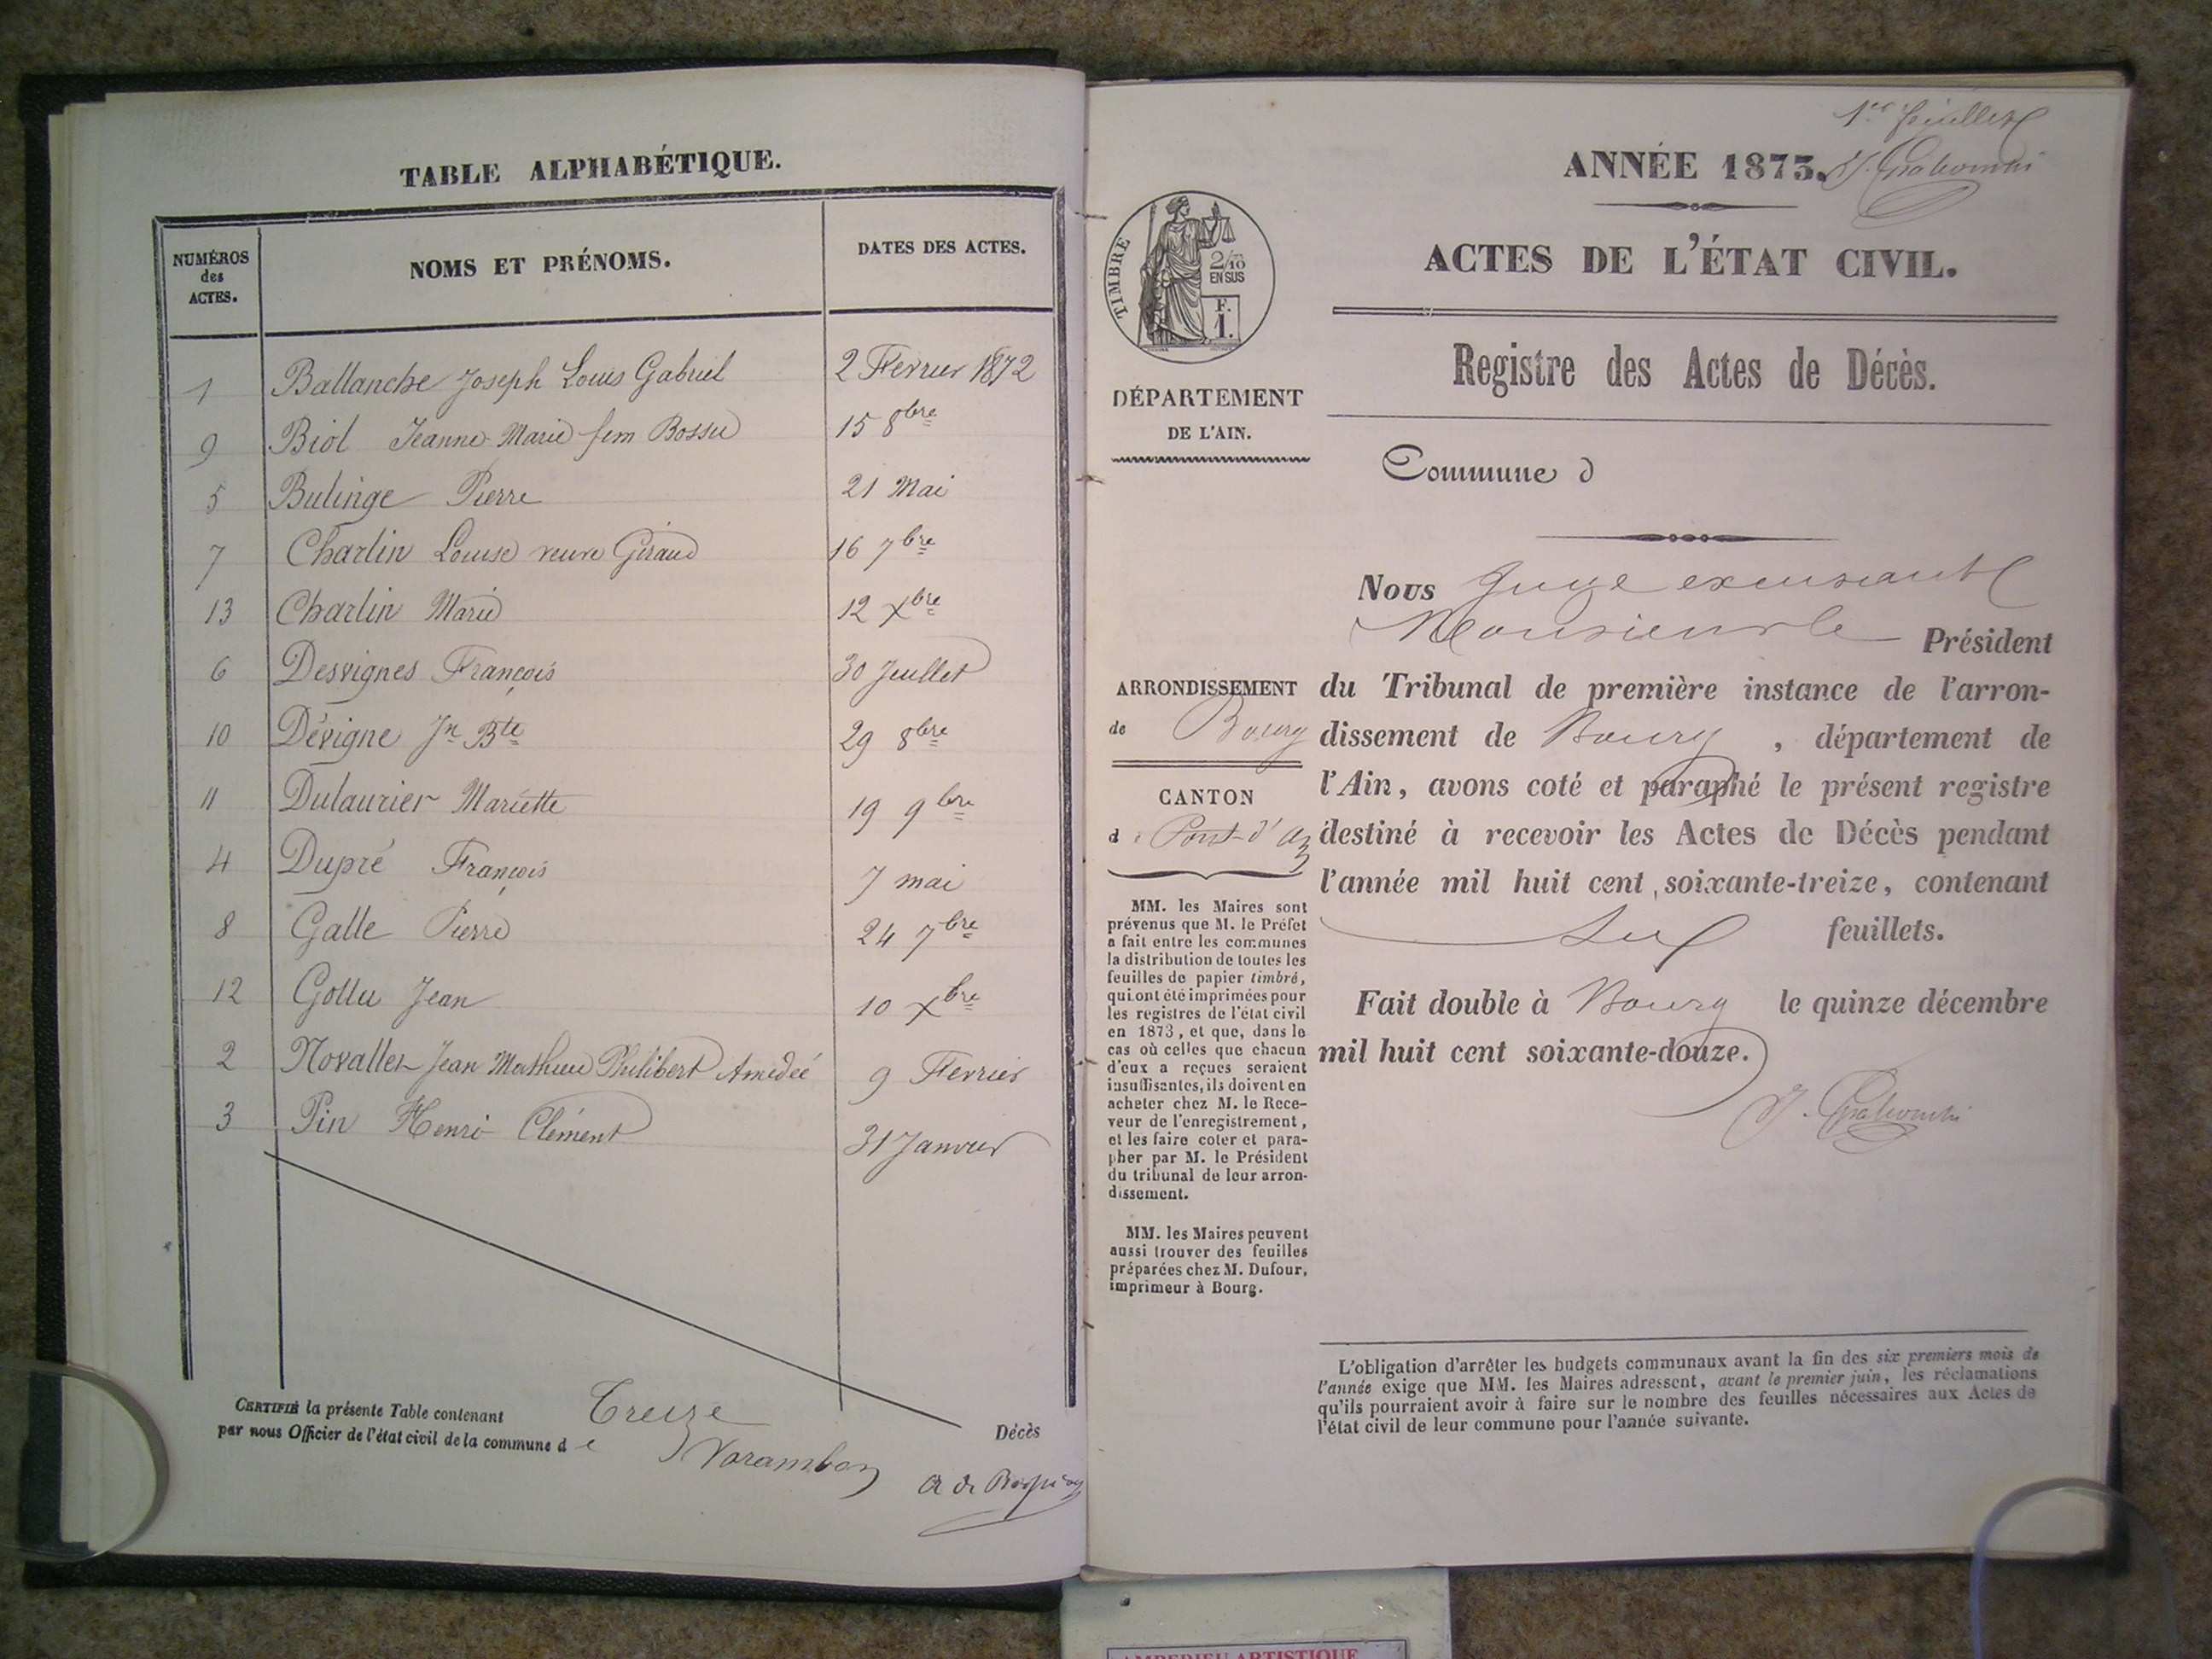 TABLE ALPHABÉTIQUE.
NUMÉROS
des
ACTES.
NOMS ET PRÉNOMS.
DATES DES ACTES.
1 Ballanche Joseph Louis Gabriel 2 Fevrier 1872
9 Biol Jeanne Marie fem Bossu 15 8bre
5 Bulinge Pierre 21 Mai
7 Charlin Louise veuve Giraud 16 7bre
13 Charlin Marie 12 Xbre
6 Desvignes François 30 Juillet
10 Dévigne Jn Bte 29 8bre
11 Dulaurier Mariette 19 9bre
4 Dupré François 7 mai
8 Galle Pierre 24 7bre
12 Gollu Jean 10 Xbre
2 Novallet Jean Mathieu Philibert Amedeé 9 Fevrier
3 Pin Henri Clément 31 Janvier
CERTIFIÉ la présente Table contenant Treize Décès
par nous Officier de l'état civil de la commune de Varambon
1er feuillet
ANNÉE 1873.
ACTES DE L'ÉTAT CIVIL.
Registre des Actes de Décès.
TIMBRE
2/10
EN SUS
F.
1.
DÉPARTEMENT
DE L'AIN.
Commune d
Nous Juge excusant
Monsieur le Président
ARRONDISSEMENT
de Bourg
CANTON
d Pont-d'
du Tribunal de première instance de l'arron-
dissement de Bourg, département de
l'Ain, avons coté et paraphé le présent registre
destiné à recevoir les Actes de Décès pendant
l'année mil huit cent soixante-treize, contenant
feuillets.
Fait double à Bourg le quinze décembre
mil huit cent soixante-douze.
MM. les Maires sont
prévenus que M. le Préfet
a fait entre les communes
la distribution de toutes les
feuilles de papier timbré,
qui ont été imprimées pour
les registres de l'état civil
en 1873, et que, dans le
cas où celles que chacun
d'eux a reçues seraient
insuffisantes, ils doivent en
acheter chez M. le Rece-
veur de l'enregistrement,
et les faire coter et para-
pher par M. le Président
du tribunal de leur arron-
dissement.
MM. les Maires peuvent
aussi trouver des feuilles
préparées chez M. Dufour,
imprimeur à Bourg.
L'obligation d'arrêter les budgets communaux avant la fin des six premiers mois de
l'année exige que MM. les Maires adressent, avant le premier juin, les réclamations
qu'ils pourraient avoir à faire sur le nombre des feuilles nécessaires aux Actes de
l'état civil de leur commune pour l'année suivante.
AMBERIEU ARTISTIQUE